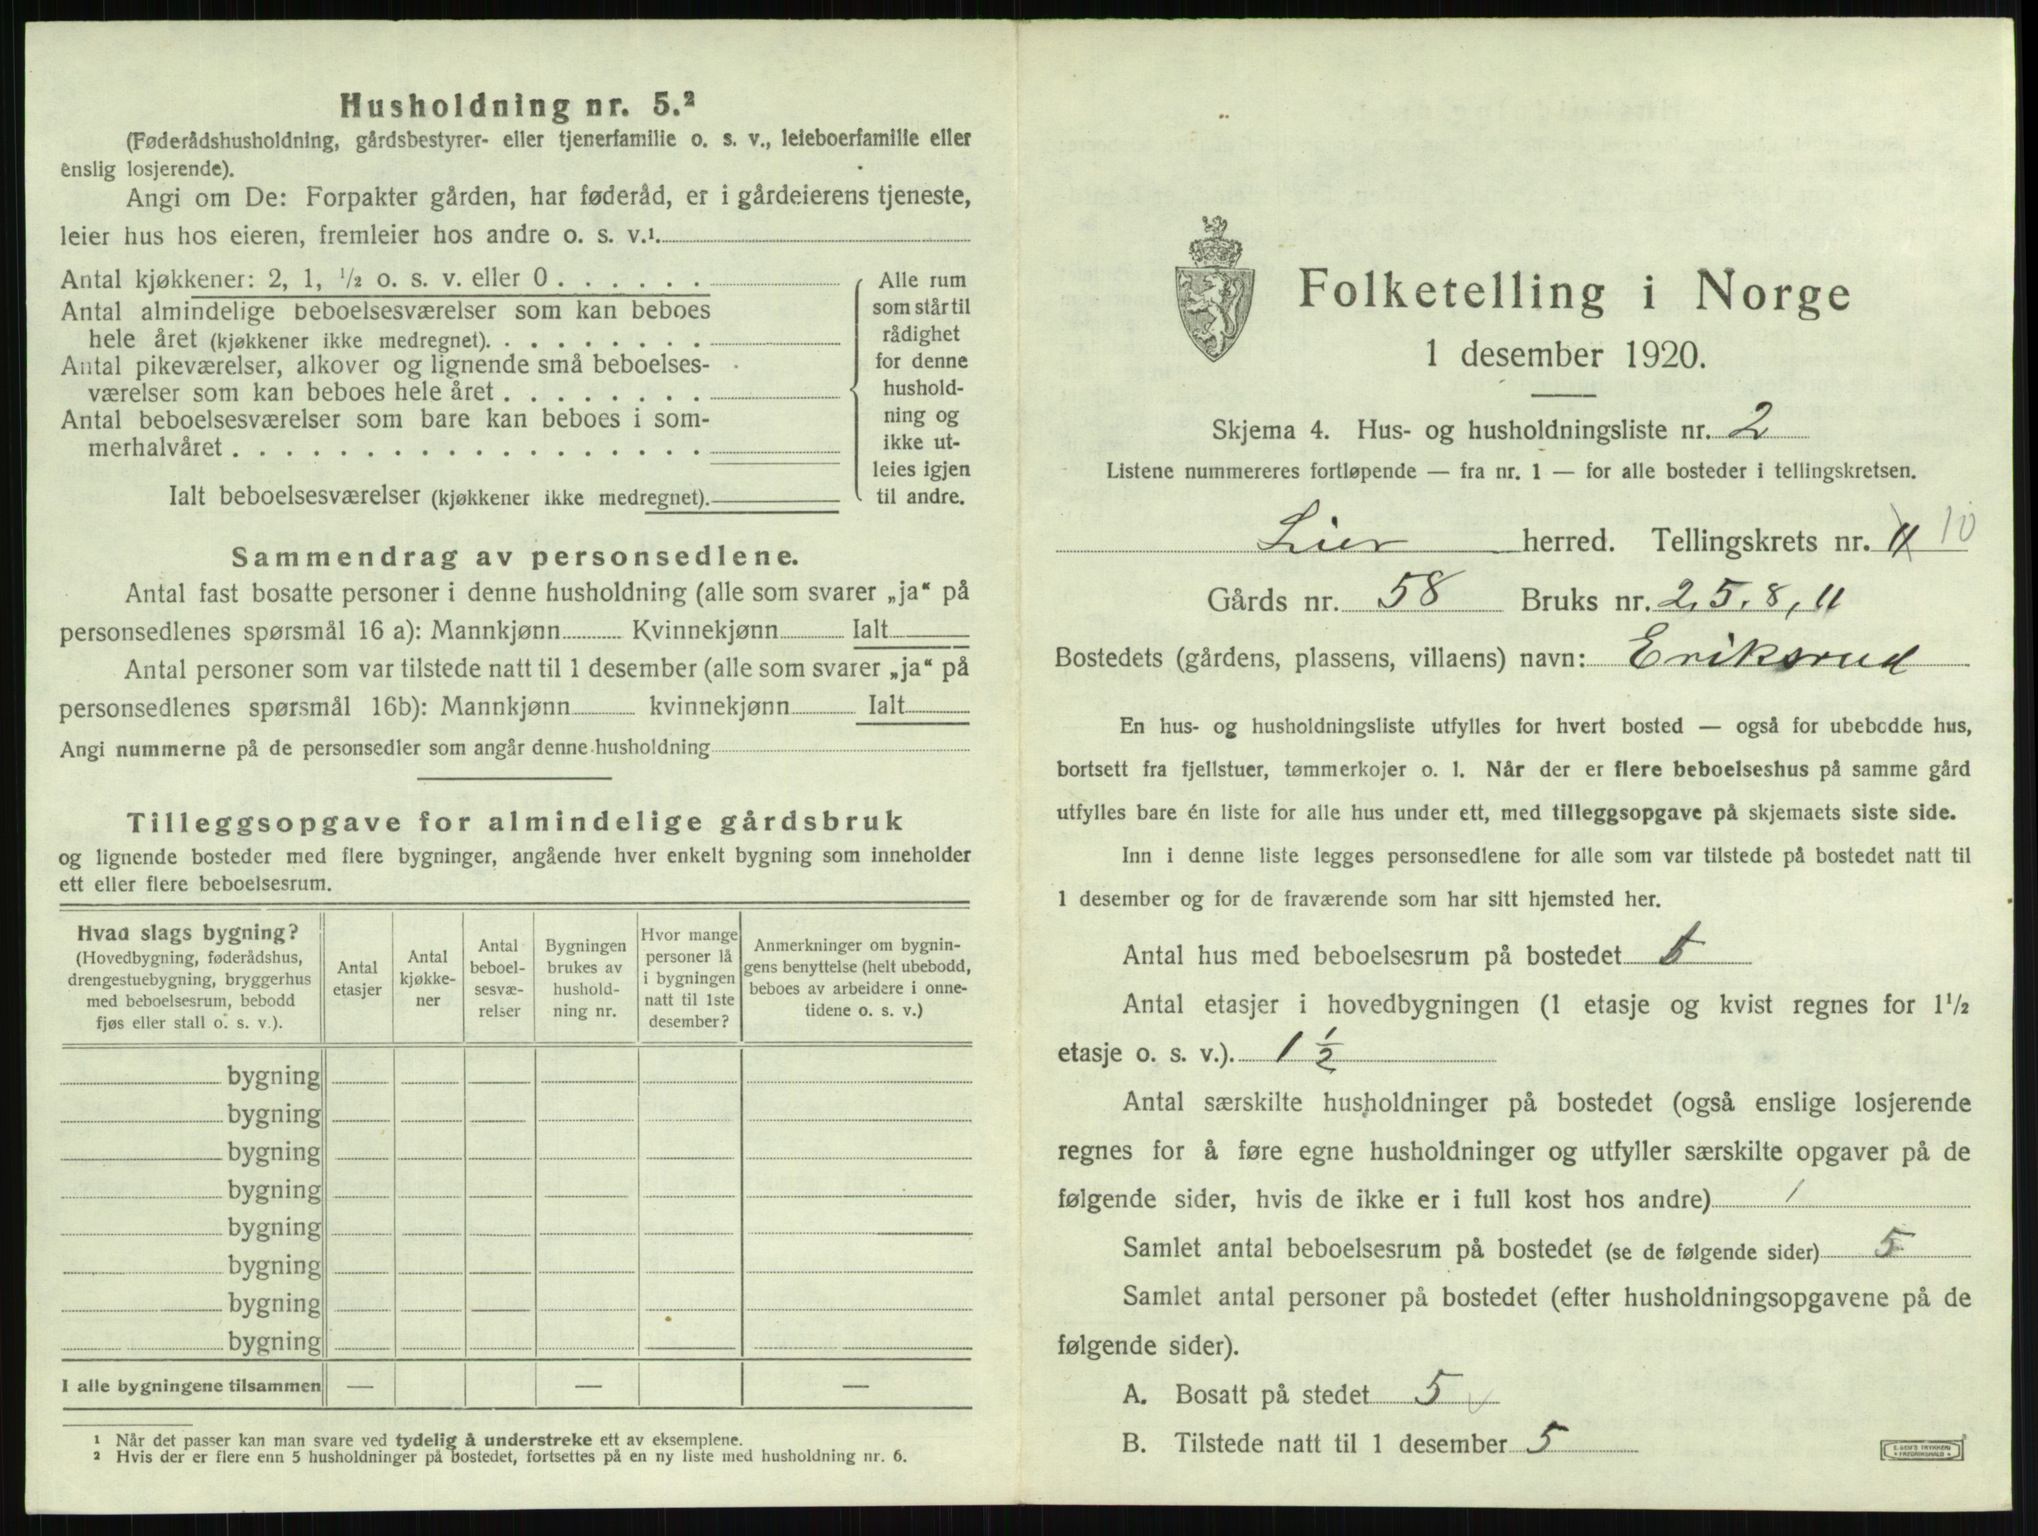 Husholdning nr. 5.²
(Føderådshusholdning, gårdsbestyrer- eller tjenerfamilie o. s. v., leieboerfamilie eller
enslig losjerende).
Angi om De: Forpakter gården, har føderåd, er i gårdeierens tjeneste,
leier hus hos eieren, fremleier hos andre o. s. v.¹
Antal kjøkkener: 2, 1, ½ o. s. v. eller 0
Antal almindelige beboelsesværelser som kan beboes
hele året (kjøkkener ikke medregnet).
Antal pikeværelser, alkover og lignende små beboelses-
værelser som kan beboes hele året
Antal beboelsesværelser som bare kan beboes i som-
merhalvåret
Ialt beboelsesværelser (kjøkkener ikke medregnet).
Alle rum
som står til
rådighet
for denne
hushold-
ning og
ikke ut-
leies igjen
til andre.
Sammendrag av personsedlene.
Antal fast bosatte personer i denne husholdning (alle som svarer „ja“ på
personsedlenes spørsmål 16 a): Mannkjønn Kvinnekjønn Ialt
Antal personer som var tilstede natt til 1 desember (alle som svarer „ja“ på
personsedlenes spørsmål 16b): Mannkjønn kvinnekjønn Ialt
Angi nummerne på de personsedler som angår denne husholdning
Tilleggsopgave for almindelige gårdsbruk
og lignende bosteder med flere bygninger, angående hver enkelt bygning som inneholder
ett eller flere beboelsesrum.
Hvad slags bygning?
(Hovedbygning, føderådshus,
drengestuebygning, bryggerhus
med beboelsesrum, bebodd
fjøs eller stall o. s. v.).
Antal
etasjer
Antal
kjøkke-
ner
Antal
beboel-
sesvæ-
relser
Bygningen
brukes av
hushold-
ning nr.
Hvor mange
personer lå
i bygningen
natt til 1ste
desember?
Anmerkninger om bygnin-
gens benyttelse (helt ubebodd,
beboes av arbeidere i onne-
tidene o. s. v.)
bygning
bygning
bygning
bygning
bygning
bygning
bygning
bygning
I alle bygningene tilsammen — — —
¹ Når det passer kan man svare ved tydelig å understreke ett av eksemplene.
² Hvis der er flere enn 5 husholdninger på bostedet, fortsettes på en ny liste med husholdning nr. 6.
Folketelling i Norge
1 desember 1920.
Skjema 4. Hus- og husholdningsliste nr. 2
Listene nummereres fortløpende — fra nr. 1 — for alle bosteder i tellingskretsen.
Lier herred. Tellingskrets nr. 11 10
Gårds nr. 58 Bruks nr. 2, 5, 8, 11
Bostedets (gårdens, plassens, villaens) navn: Eriksrud
En hus- og husholdningsliste utfylles for hvert bosted — også for ubebodde hus,
bortsett fra fjellstuer, tømmerkojer o. l. Når der er flere beboelseshus på samme gård
utfylles bare én liste for alle hus under ett, med tilleggsopgave på skjemaets siste side.
Inn i denne liste legges personsedlene for alle som var tilstede på bostedet natt til
1 desember og for de fraværende som har sitt hjemsted her.
Antal hus med beboelsesrum på bostedet
Antal etasjer i hovedbygningen (1 etasje og kvist regnes for 1½
etasje o. s. v.). 1 ½
Antal særskilte husholdninger på bostedet (også enslige losjerende
regnes for å føre egne husholdninger og utfyller særskilte opgaver på de
følgende sider, hvis de ikke er i full kost hos andre) 1
Samlet antal beboelsesrum på bostedet (se de følgende sider) 5
Samlet antal personer på bostedet (efter husholdningsopgavene på de
følgende sider).
A. Bosatt på stedet 5
B. Tilstede natt til 1 desember 5